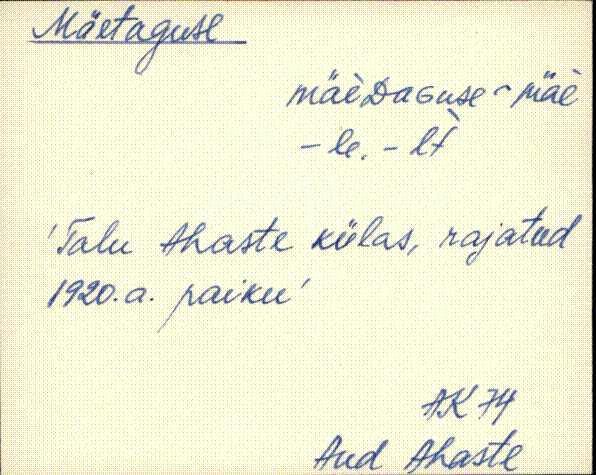 Mäetaguse
mäèDaGuse ~ mäè
- le. - lt̀
'Talu Ahaste külas, rajatud
1920. a. paiku'
AK 74
Aud Ahaste